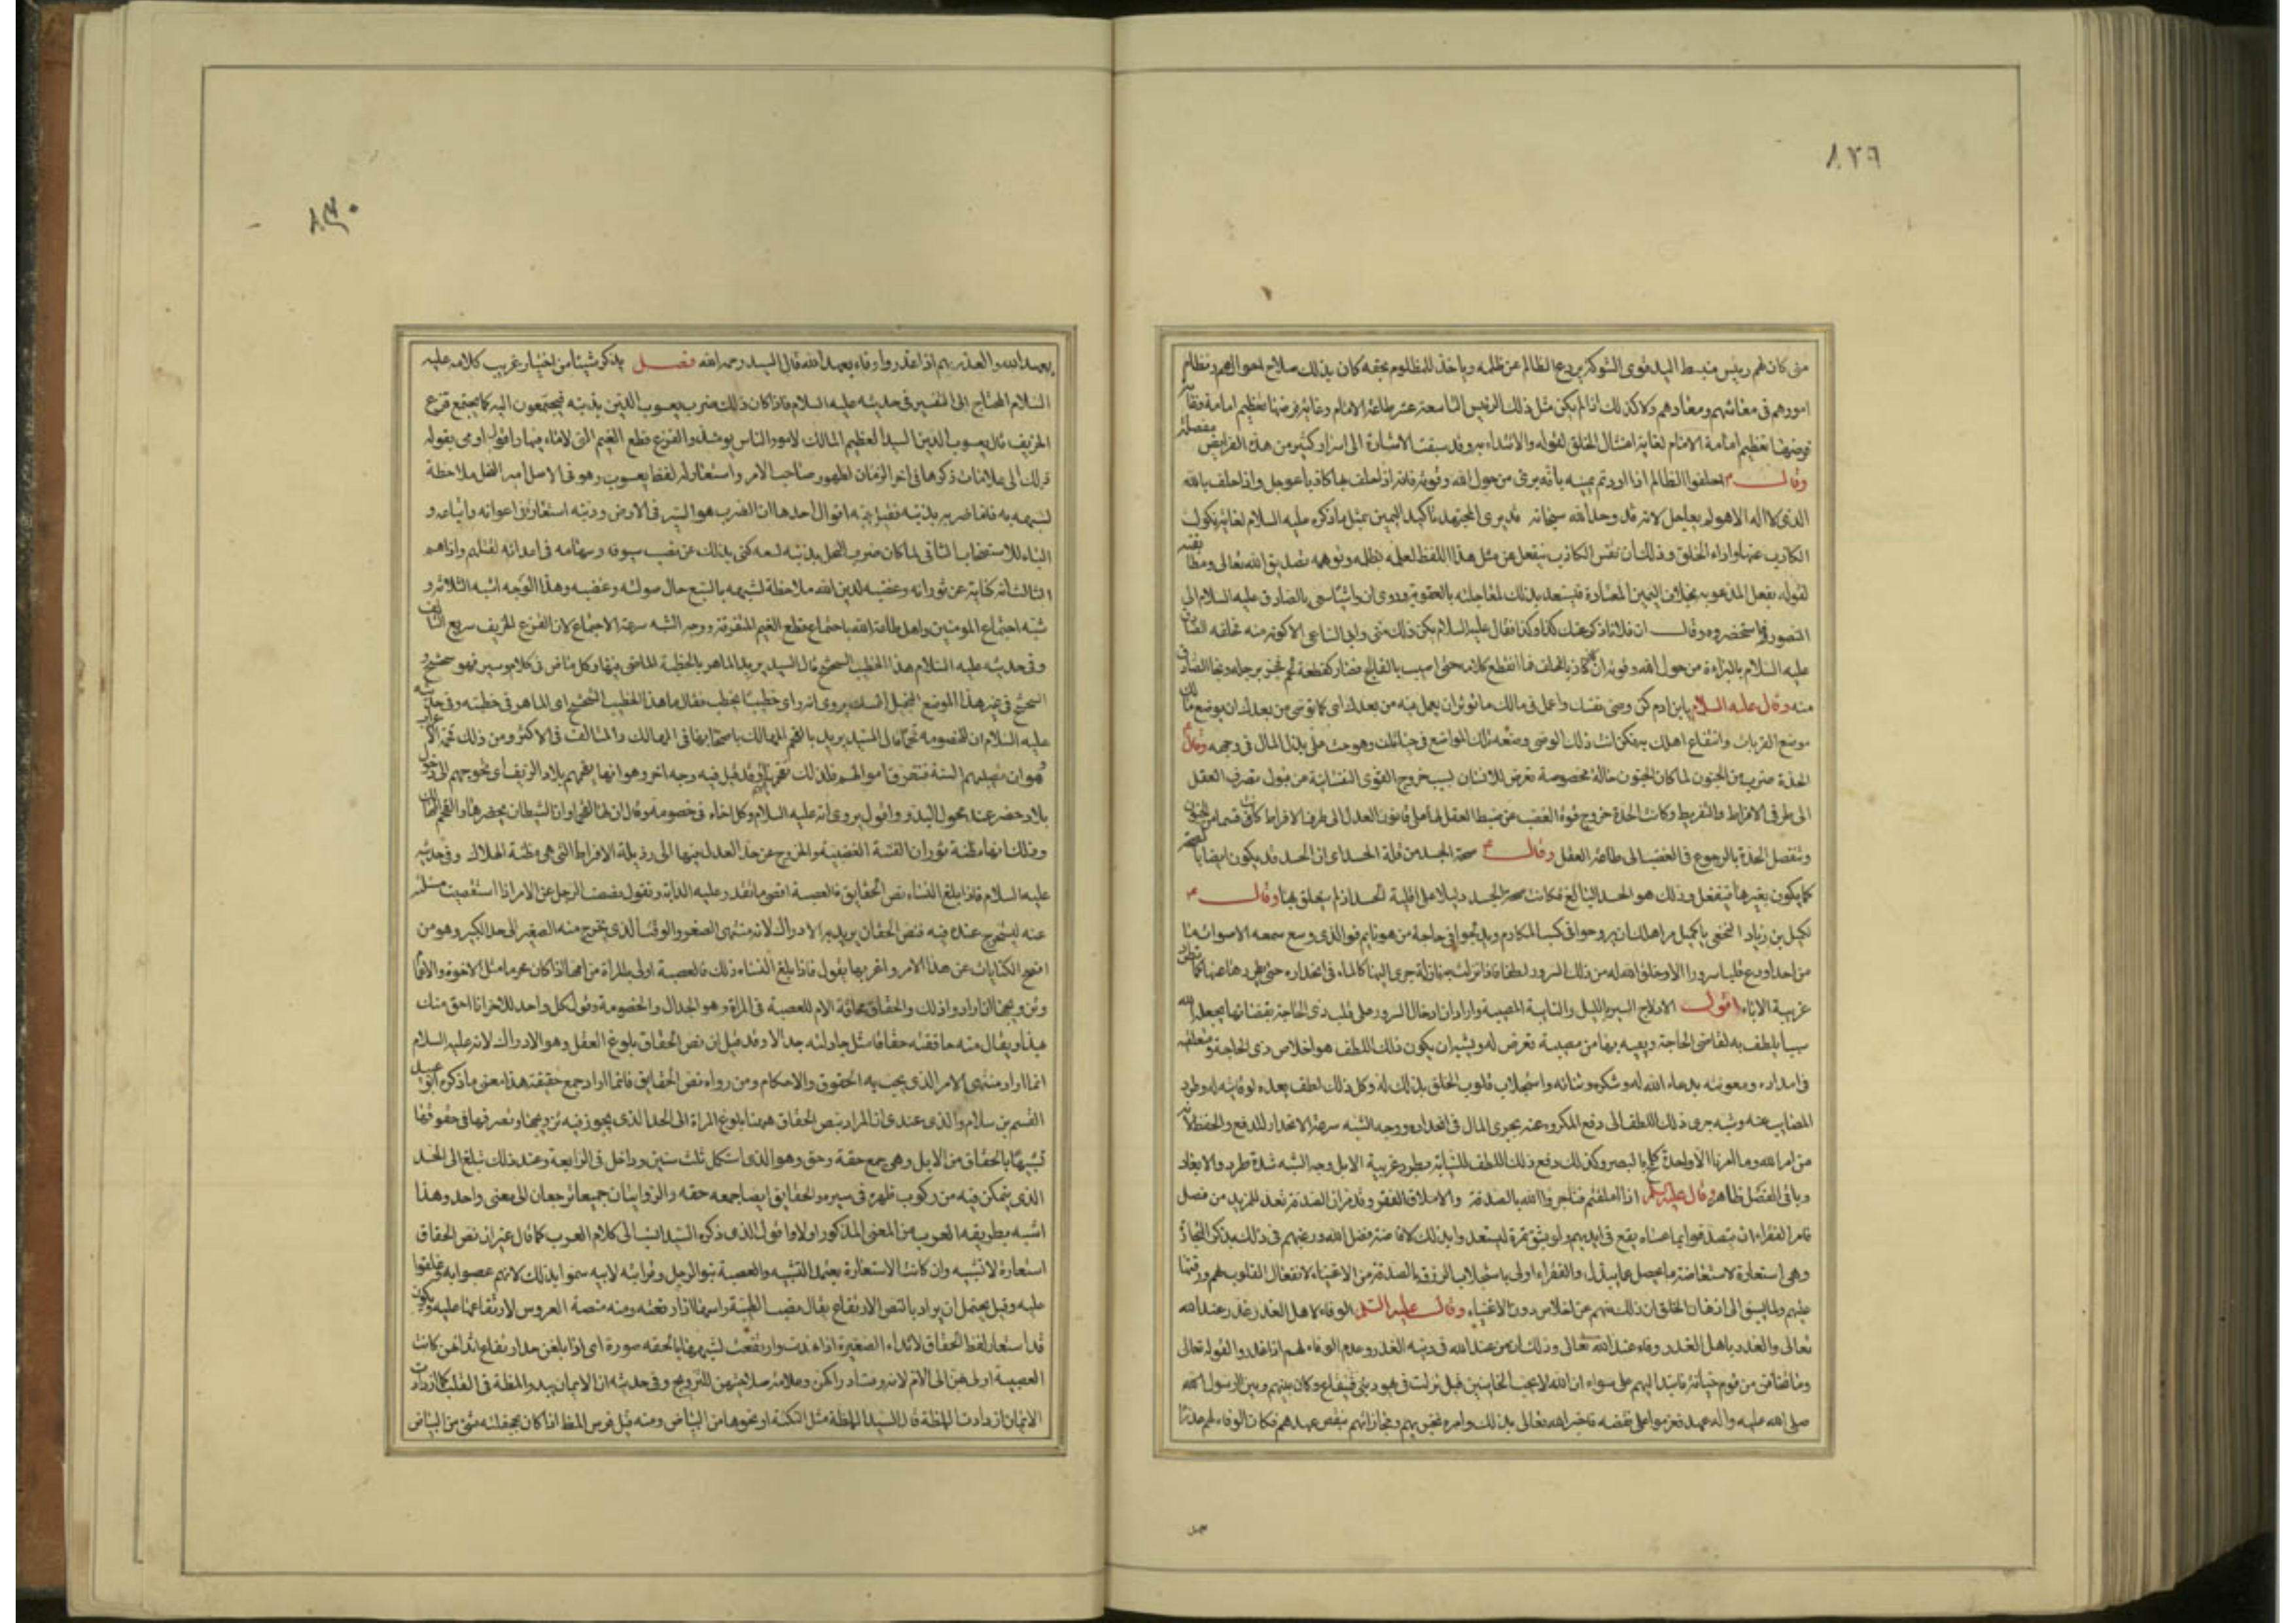 ٨٢٩
متى كان لهم رئيس منبسط اليد قوى الشوكة يردع الظالم عن ظلمه وياخذ للمظلوم بحقه كان بذلك صلاح احوالهم ونظام
امورهم فى معاشهم ومعادهم ولا كذلك اذا لم يكن مثل ذلك الرئيس التاسعة عشر طاعة الامام وغاية فرضها تعظيم امامة
فرضها تعظيم امامة الامام لغاية امتثال الخلق لقوله والاقتداء به وقد سبقت الاشارة الى اسرار كثير من هذه الفرايض مفصلة
وقال احلفوا الظالم اذا اردتم يمينه بانه برئ من حول الله وقوته فانه اذا حلف بها كاذبا عوجل واذا حلف بالله
الذى لا اله الا هو لم يعاجل لانه قد وحد الله سبحانه قد يرى المجتهد تاكيد اليمين بمثل ما ذكره عليه السلام لغاية نكول
الكاذب عنها واداء الخلق وذلك ان نفس الكاذب ينفعل عن مثل هذا اللفظ لعلمه بظلمه وتوهمه تصديق الله تعالى
لقوله بفعل المدعو به بخلاف اليمين المعتادة فيستعد بذلك لمعاجلته بالعقوبة وروى ان واشيا سعى بالصادق عليه السلام الى
المنصور فاستحضره وقال ان فلانا ذكر عنك كذا وكذا فقال عليه السلام لم يكن ذلك منى وابى الساعى الا كونه منه فحلفه الصادق
عليه السلام بالبراءة من حول الله وقوته ان كان كاذبا فحلف فما انقطع كلامه حتى اصيب بالفالج فصار كقطعة لحم فجر برجله ونجا الصادق
منه وقال عليه السلام يابن ادم كن وصى نفسك واعمل فى مالك ما تؤثر ان يعمل فيه من بعدك اى كما توصى من بعدك ان يوضع مالك
موضع القربات وانتفاع اهلك به فكن انت ذلك الوصى وضعه تلك المواضع فى حياتك وهو حث على بذل المال فى وجهه وقال
الحدة ضرب من الجنون لما كان الجنون حالة مخصوصة تعرض للانسان بسبب خروج القوى النفسانية عن قبول تصرف العقل
الى طرفى الافراط والتفريط وكانت الحدة خروج قوة الغضب عن ضبط العقل لها على قانون العدل الى طرف الافراط كانت قسما من الجنون
وتنفصل الحدة بالرجوع فى الغضب الى طاعة العقل وقال صحة الجسد من قلة الحسد اى ان الحسد قد يكون
كما يكون بغيرها فيفعل وذلك هو الحسد البالغ فكانت صحة الجسد دليلا على اقلية الحسد اذ لم يحلق بها وقال
لكميل بن زياد النخعى يا كميل مر اهلك ان يروحوا فى كسب المكارم ويدلجوا فى حاجة من هو نايم فوالذى وسع سمعه الاصوات ما
من احد اودع قلبا سرورا الا وخلق الله له من ذلك السرور لطفا فاذا نزلت به نازلة جرى اليها كالماء فى انحداره حتى يطردها عنه كما تطرد
غريبة الابل اقول الادلاج السير بالليل والنايبة المصيبة واراد ان ادخال السرور على قلب ذى الحاجة بقضائها يجعله الله
سببا يلطف به لقاضى الحاجة ويقيه بها من مصيبة تعرض له ويشبه ان يكون ذلك اللطف هو اخلاص ذى الحاجة ومتعلقيه
فى امداده ومعونته بدعاء الله له وشكره وثنائه واستجلاب قلوب الخلق بذلك له وكل ذلك لطف يعده لوقايته له وطرد
المصايب عنه وشبه جرى ذلك اللطف الى دفع المكروه عنه بجرى الماء فى انحداره ووجه الشبه سرعة الانحدار للدفع والحفظ
من امر الله وما امرنا الا واحدة كلمح بالبصر وكذلك دفع ذلك اللطف للنايبة بطرد غريبة الابل وجه الشبه شدة طرد والابعاد
وباقى الفصل ظاهر وقال عليه السلم اذا املقتم فتاجروا الله بالصدقة والاملاق الفقر وقد مر ان الصدقة تعد للمزيد من فضل
فامر الفقراء ان يتصدقوا بما عساه يقع فى ايديهم ولو بشق تمرة ليستعدوا بذلك لافاضة فضل الله ورغبهم فى ذلك بذكر التجارة
وهى استعارة لاستفاضة ما يحصل عما يبذل والفقراء اولى باستجلاب الرزق بالصدقة من الاغنياء لانفعال القلوب لهم ورقتها
عليهم ولما يسبق الى اذهان الخلق ان ذلك منهم عن اخلاص دون الاغنياء وقال عليه السلم الوفاء لاهل الغدر غدر عند الله
تعالى والغدر باهل الغدر وفاء عند الله تعالى وذلك ان من عهد الله فى دينه الغدر وعدم الوفاء لهم اذا غدروا لقوله تعالى
وما تخافن من قوم خيانة فانبذ اليهم على سواء ان الله لا يحب الخاينين قيل نزلت فى يهود بنى قينقاع وكان بينهم وبين الرسول الله
صلى الله عليه واله عهد فعزموا على نقضه فاخبره الله تعالى بذلك وامره بحربهم ومجازاتهم بنقض عهدهم فكان الوفاء لهم غدرا
٨٣٠
بعهد الله والغدر بهم اذا غدروا وفاء بعهد الله قال السيد رحمه الله فصل يذكر شيئا من اختيار غريب كلامه عليه
السلام المحتاج الى التفسير فى حديثه عليه السلام فاذا كان ذلك ضرب يعسوب الدين بذنبه فيجتمعون اليه كما يجتمع قزع
الخريف قال يعسوب الدين السيد العظيم المالك لامور الناس يومئذ والقزع قطع الغيم التى لا ماء فيها واقول اومى بقوله
ذلك الى علامات ذكرها فى اخر الزمان لظهور صاحب الامر واستعار له لفظ يعسوب وهو فى الاصل امير النحل ملاحظة
لشبهه به فاما ضربه بذنبه فقيل فيه اقوال احدها ان الضرب هو السير فى الارض وذنبه استعارة فى اعوانه واتباعه و
الباء للاستصحاب الثانى لما كان ضرب النحل بذنبه لسعه كنى بذلك عن نصب سيوفه وسهامه فى اعدائه لقتلهم واذاهم
الثالث انه كناية عن ثورانه وغضبه لدين الله ملاحظة لشبهه بالسبع حال صولته وغضبه وهذا الوجه اشبه الثلاثة و
شبه اجتماع المومنين واهل طاعة الله باجتماع قطع الغيم المتفرقة ووجه الشبه سرعة الاجتماع لان القزع الخريف سريع التالف
وفى حديثه عليه السلام هذا الخطيب الشحشح قال السيد يريد الماهر بالخطبة الماضى فيها وكل ماض فى كلام وسير فهو شحشح و
الشحشح فى غير هذا الموضع البخيل الممسك يروى انه راى خطيبا يخطب فقال ما هذا الخطيب الشحشح اى الماهر فى خطبته وفى حديثه
عليه السلام ان للخصومة قحما قال السيد يريد بالقحم المهالك لانها تقحم اصحابها فى المهالك والمتالف فى الاكثر ومن ذلك قحمة الاعراب
وهو ان تصيبهم السنة فتتعرق اموالهم فذلك تقحمها وقد قيل فيه وجه اخر وهو انها تقحمهم بلاد الريف اى تحوجهم الى دخول
بلاد الحضر عند محول البدو واقول يروى انه عليه السلام وكل اخاه فى خصومة وقال ان لها لقحما وان الشيطان يحضرها والقحم المهالك
وذلك انها مظنة ثوران الفتنة الغضبية والخروج عن حد العدل فيها الى رذيلة الافراط التى هى مظنة الهلاك وفى حديثه
عليه السلام فاذا بلغ النساء نص الحقايق فالعصبة اقصى ما تقدر عليه الدابة وتقول نصصت الرجل عن الامر اذا استقصيت مسئلته
عنه لتستخرج ما عنده فيه فنص الحقاق يريد به الادراك لانه منتهى الصغر والوقت الذى يخرج منه الصغير الى حد الكبير وهو من
افصح الكنايات عن هذا الامر واغربها يقول فاذا بلغ النساء ذلك فالعصبة اولى بالمراة من امها اذا كانوا محرما مثل الاخوة والاعمام
وتزويجها ان ارادوا ذلك والحقاق محاقة الام للعصبة فى المراة وهو الجدال والخصومة وقول كل واحد للاخر انا احق منك
بهذا ويقال منه حاققته حقاقا مثل جادلته جدالا وقد قيل ان نص الحقاق بلوغ العقل وهو الادراك لانه عليه السلام
انما اراد منتهى الامر الذى يجب به الحقوق والاحكام ومن رواه نص الحقايق فانما اراد جمع حقيقة هذا معنى ما ذكره ابو عبيد
القسم بن سلام والذى عندى ان المراد بنص الحقاق ههنا بلوغ المراة الى الحد الذى يجوز فيه تزويجها وتصرفها فى حقوقها
تشبيها بالحقاق من الابل وهى جمع حقة وحق وهو الذى استكمل ثلث سنين ودخل فى الرابعة وعند ذلك تبلغ الى الحد
الذى يتمكن فيه من ركوب ظهره فى سيره والحقايق ايضا جمع حقه والروايتان جميعا ترجعان الى معنى واحد وهذا
اشبه بطريقة العرب من المعنى المذكور اولا واقول الذى ذكره السيد انسب الى كلام العرب كما قال غير ان نص الحقاق
استعارة لا تشبيه وان كانت الاستعارة يعتمد التشبيه والعصبة بنو الرجل وقرابته لابيه سموا بذلك لانهم عصبوا به وعلقوا
عليه وقيل يحتمل ان يراد بالنص الارتفاع يقال نصت الظبية راسها اذا رفعته ومنه منصة العروس لارتفاعها عليه ويكون
قد استعار لفظ الحقاق لاثداء الصغيرة اذا نهدت وارتفعت لشبهها بالحقه صورة اى اذا بلغن حد ارتفاع اثدائهن كانت
العصبة اولى بهن الى الام لانه وقت ادراكهن وعلامة صلاحهن للتزويج وفى حديثه ان الايمان يبدو لمظة فى القلب كلما ازداد
الايمان ازدادت اللمظة قال السيد اللمظة مثل النكتة او نحوها من البياض ومنه قيل فرس المظ اذا كان بجحفلته شئ من البياض